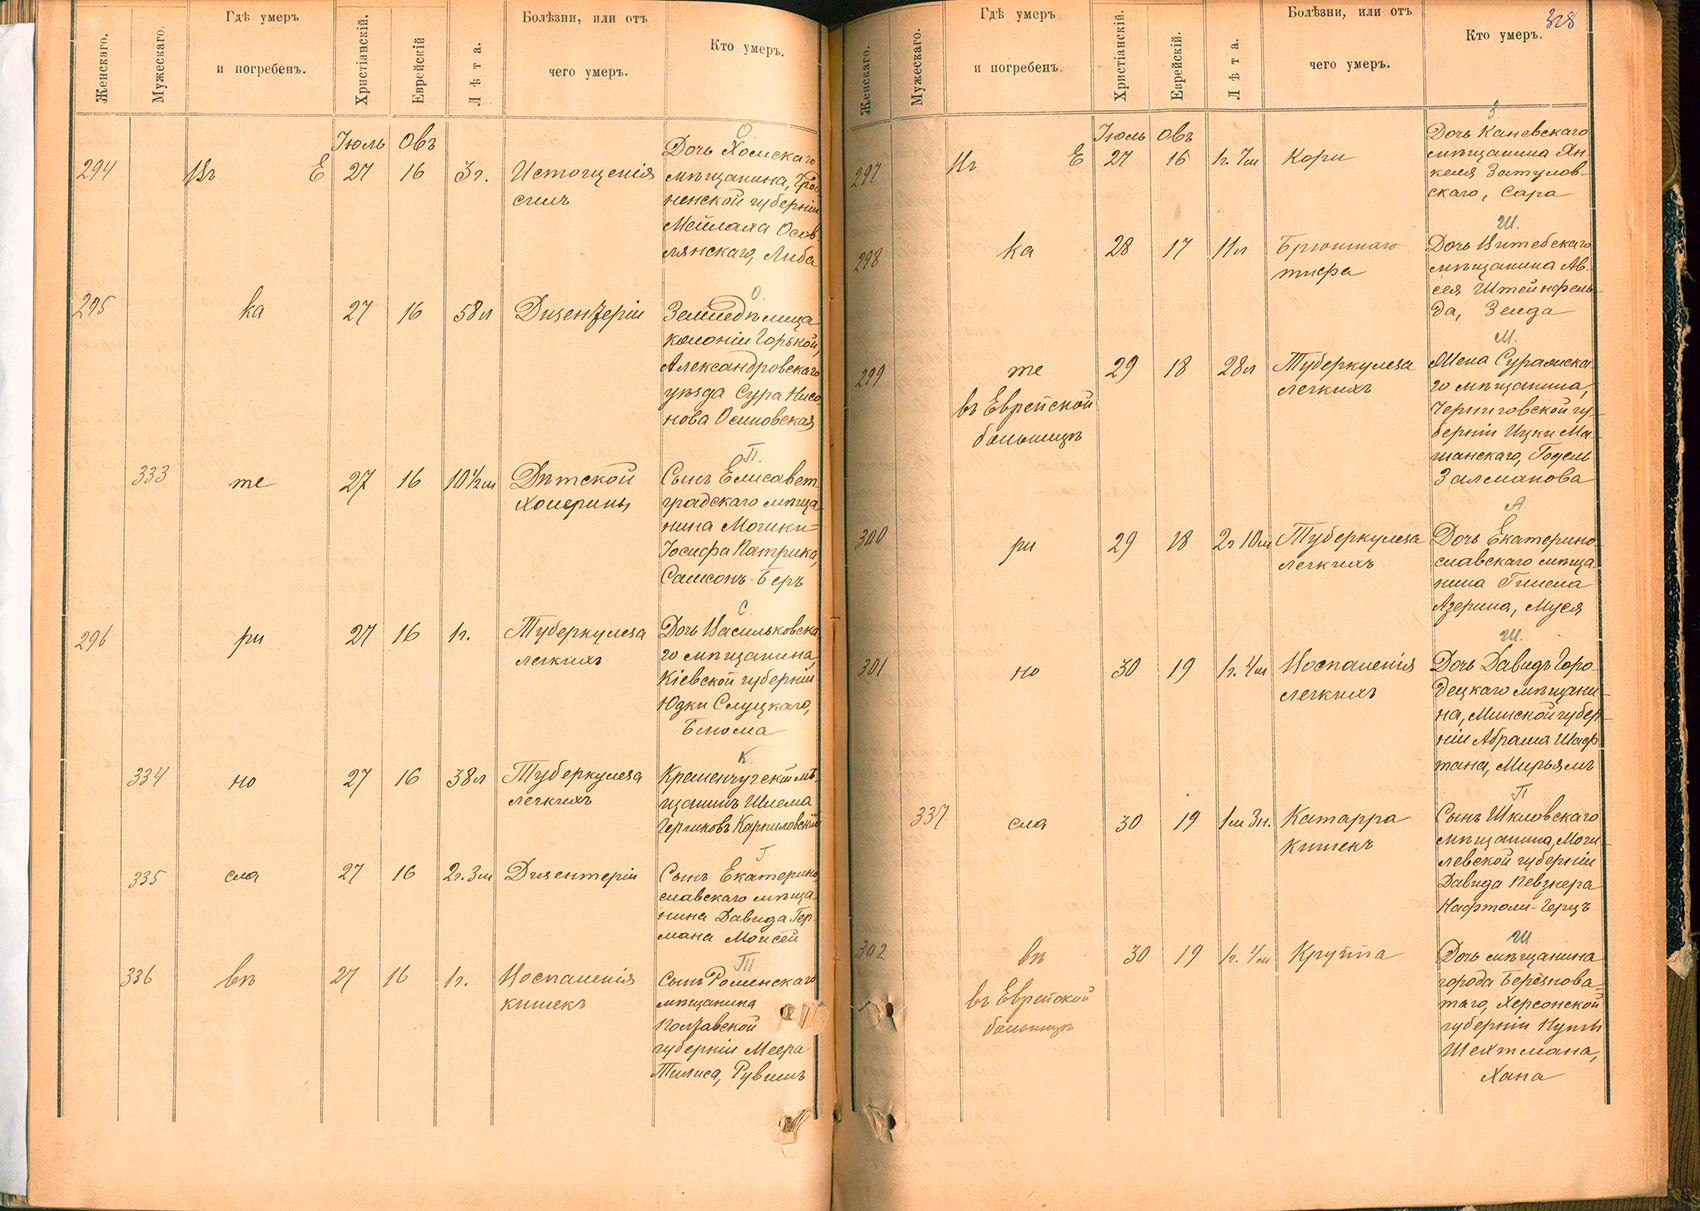 Женскаго.
Мужескаго.
Гдѣ умеръ
и погребенъ.
Христіанскій.
Еврейскій
Лѣта.
Болѣзни, или отъ
чего умеръ.
Кто умеръ.
Іюль Овъ
О
294 Въ Е 27 16 3 г. Истощенія
силъ
Дочь Хомскаго
мѣщанина, Грод
ненской губерніи
Мейлаха Осов
лянскаго, Либа
О.
295 ка 27 16 58 л Дизентеріи
Земледѣлица
колоніи Горькой,
Александровскаго
уѣзда Сура Нисо
нова Осиповская
П.
333 те 27 16 10 ½ м Дѣтской
холерины
Сынъ Елисавет
градскаго мѣща
нина Мошки=
Іосифа Патрика,
Самсонъ-Беръ
С.
296 ри 27 16 1 г. Туберкулеза
легкихъ
Дочь Васильковска
го мѣщанина,
Кіевской губерніи
Юдки Слуцкаго,
Блюма
К
334 но 27 16 38 л Туберкулеза
легкихъ
Кременчугскій мѣ
щанинъ Шлема
Гершковъ Карпиловскій
Г
335 сла 27 16 2 г. 3 м Дизентеріи
Сынъ Екатерино
славскаго мѣща
нина Давида Гер
мана Моисей
П
336 въ 27 16 1 г. Воспаленія
кишекъ
Сынъ Роменскаго
мѣщанина
Полтавской
губерніи Меера
Пилиса, Рувинъ
Женскаго.
Мужескаго.
Гдѣ умеръ
и погребенъ
Христіанскій.
Еврейскій.
Лѣта.
Болѣзни, или отъ
чего умеръ.
Кто умеръ.
328
Іюль Овъ
З
297 Въ Е 27 16 1 г. 7 м Кори
Дочь Каневскаго
мѣщанина Ян
келя Затулов-
скаго, Сара
Ш.
298 ка 28 17 11 л Брюшнаго
тифа
Дочь Витебскаго
мѣщанина Ав-
сея Штейнфель-
да, Зелда
М.
299 те 29 18 28 л Туберкулеза
легкихъ
въ Еврейской
больницѣ
Жена Суражска
го мѣщанина,
Черниговской гу-
берніи Ицки Ма-
шанскаго, Годель
Залманова
А
300 ри 29 18 2 г 10 м Туберкулеза
легкихъ
Дочь Екатерино
славскаго мѣща
нина Гилела
Азерина, Муся
Ш.
301 но 30 19 1 г. 4 м Воспаленія
легкихъ
Дочь Давидъ Горо-
децкаго мѣщани-
на, Минской губер-
ніи Абрама Шаф
тана, Мирьямъ
П
337 сла 30 19 1 м 3 н. Катарра
кишекъ
Сынъ Шкловскаго
мѣщанина, Моги-
левской губерніи
Давида Певзнера
Нафтоли-Герцъ
Ш
302 въ 30 19 1 г. 4 м Круппа
въ Еврейской
больницѣ
Дочь мѣщанина
города Березнова-
таго, Херсонской
губерніи Нуты
Шехтмана,
Хана